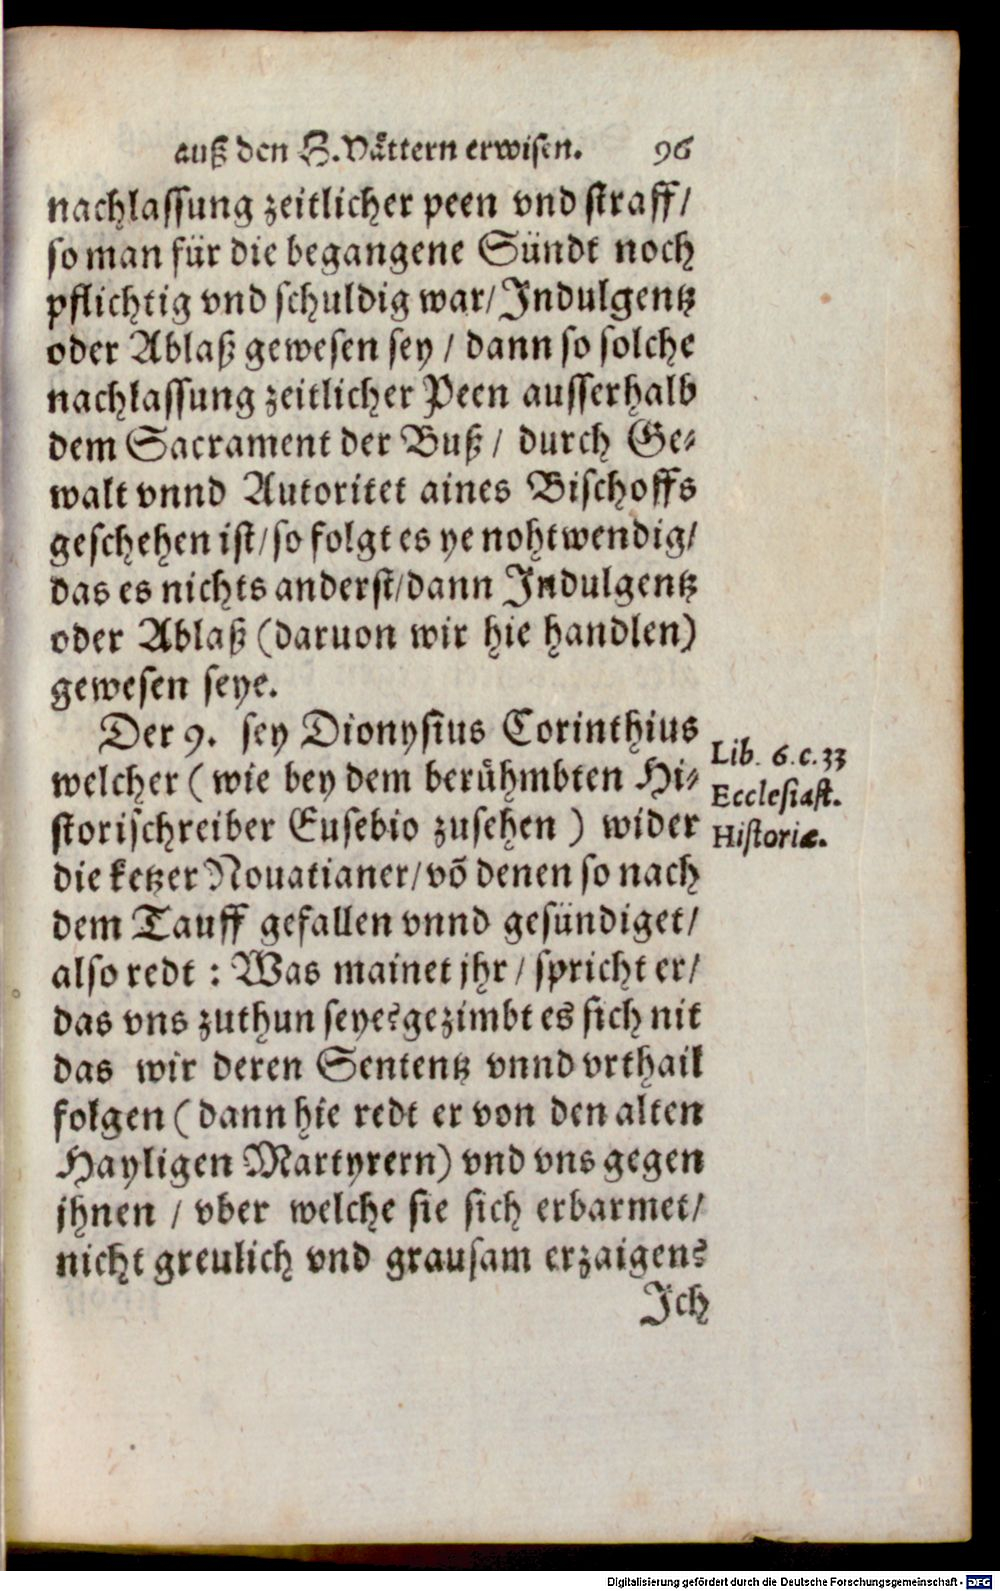 auß den H. Vättern erwisen. 96
nachlassung zeitlicher peen vnd straff/
so man für die begangene Sündt noch
pflichtig vnd schuldig war/ Indulgentz
oder Ablaß gewesen sey / dann so solche
nachlassung zeitlicher Peen ausserhalb
dem Sacrament der Buß / durch Ge-
walt vnnd Autoritet aines Bischoffs
geschehen ist/ so folgt es ye nohtwendig/
das es nichts anderst/ dann Indulgentz
oder Ablaß (daruon wir hie handlen)
gewesen seye.
Der 9. sey Dionysius Corinthius
welcher ( wie bey dem berühmbten Hi-
storischreiber Eusebio zusehen ) wider
die ketzer Nouatianer/ võ denen so nach
dem Tauff gefallen vnnd gesündiget/
also redt : Was mainet jhr / spricht er/
das vns zuthun seye? gezimbt es sich nit
das wir deren Sententz vnnd vrthail
folgen ( dann hie redt er von den alten
Hayligen Martyrern) vnd vns gegen
jhnen / vber welche sie sich erbarmet/
nicht greulich vnd grausam erzaigen?
Ich
Lib. 6. c. 33
Ecclesiast.
Historiæ.
Digitalisierung gefördert durch die Deutsche Forschungsgemeinschaft - DFG